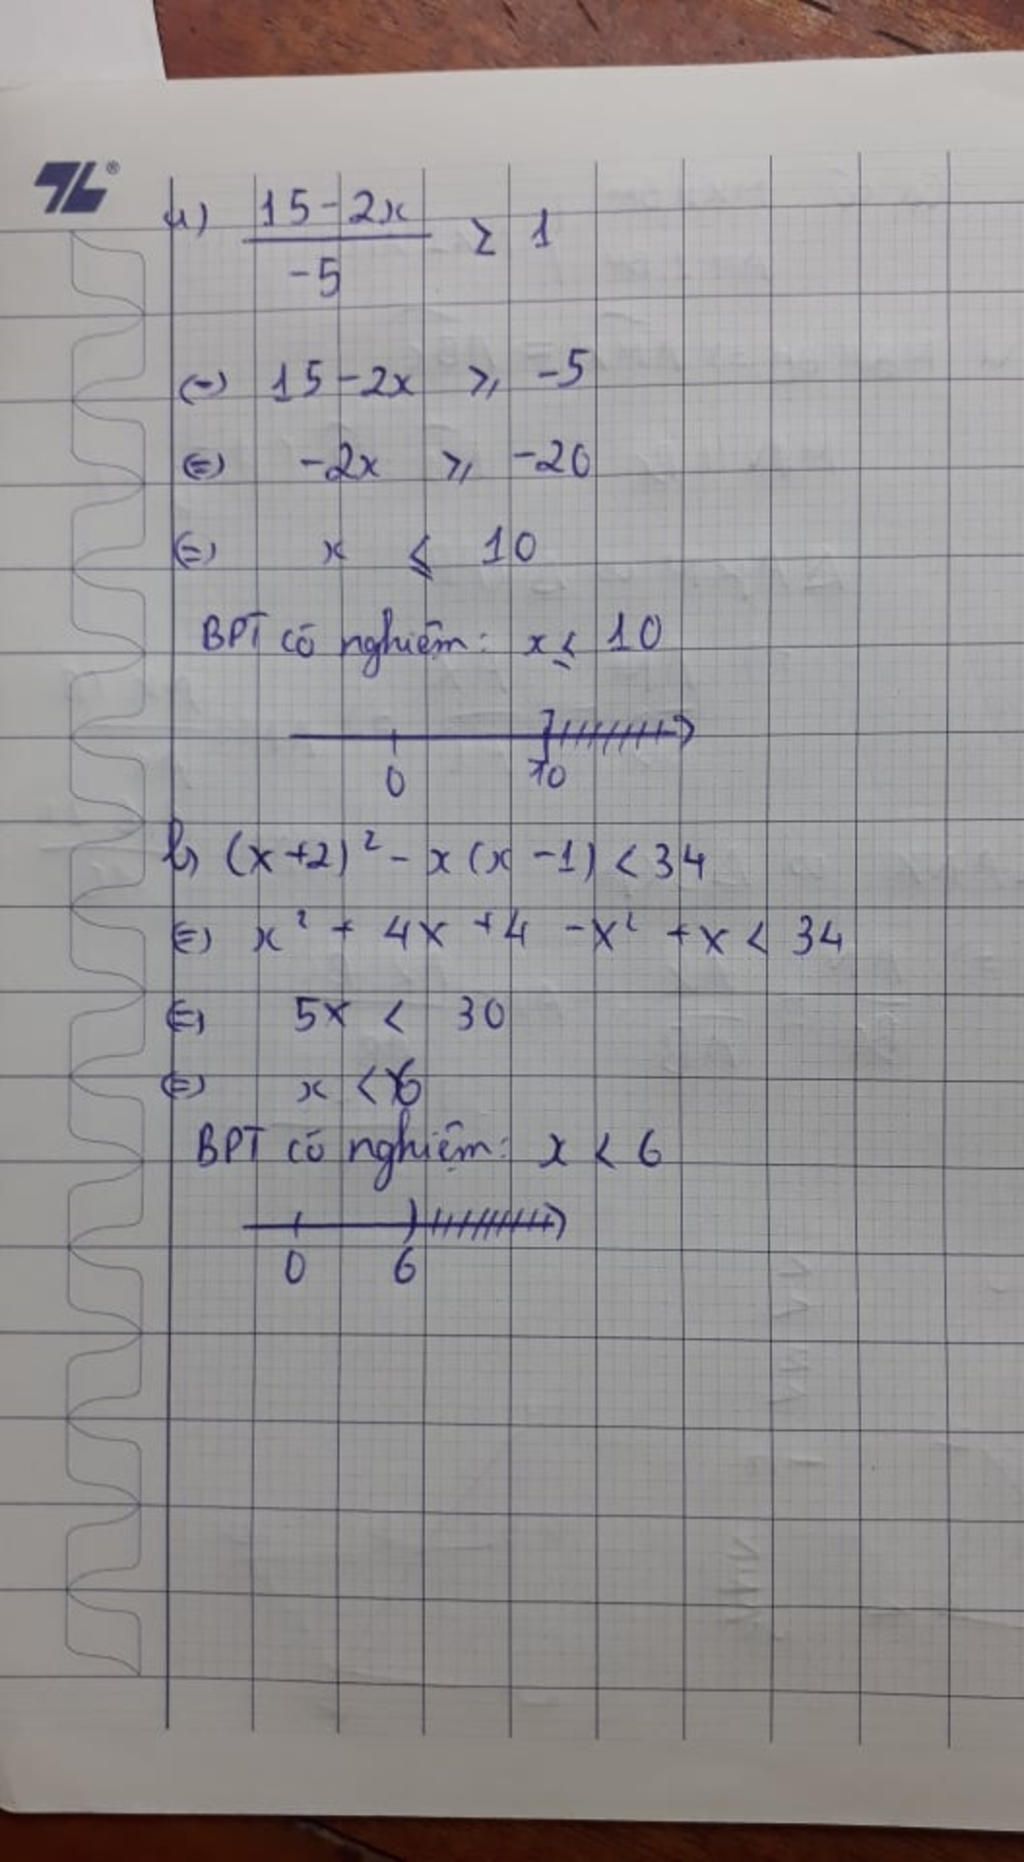 a) (15-2x)/(-5) ≥ 1
(=) 15-2x ≥ -5
(=) -2x ≥ -20
(=) x ≤ 10
BPT có nghiệm: x ≤ 10
0 10
b) (x+2)² - x(x-1) < 34
(=) x² + 4x + 4 - x² + x < 34
(=) 5x < 30
(=) x < 6
BPT có nghiệm: x < 6
0 6